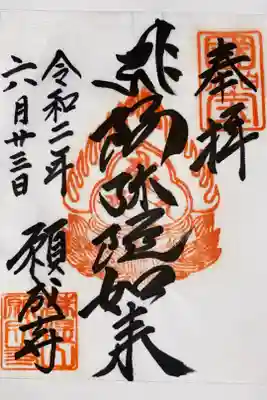 奉拝
阿弥陀如来
令和二年
六月廿三日
願成寺